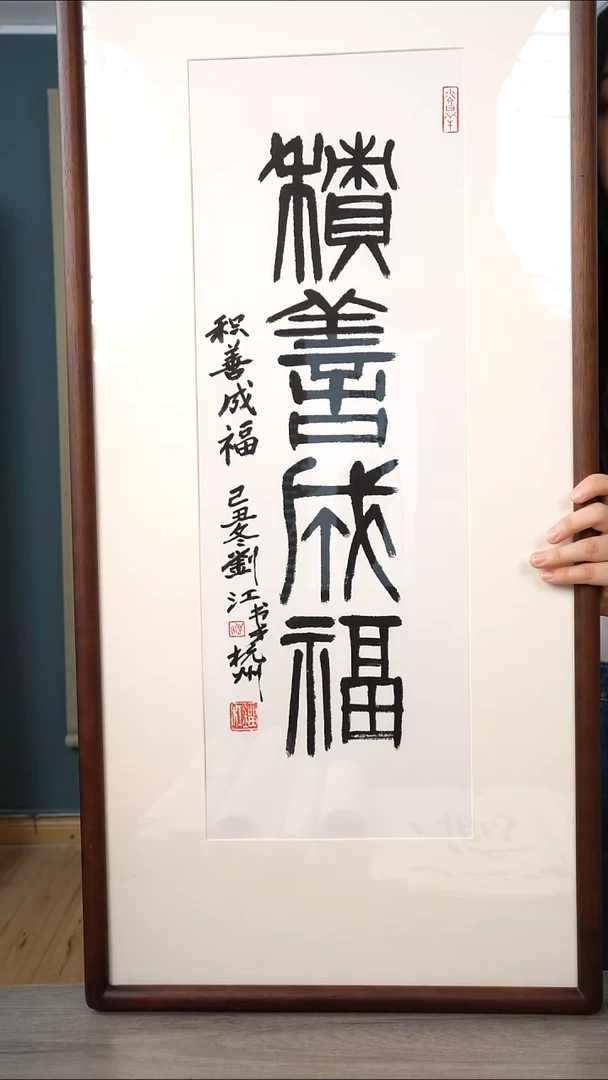 積善成福
积善成福 己丑冬劉江书于杭州